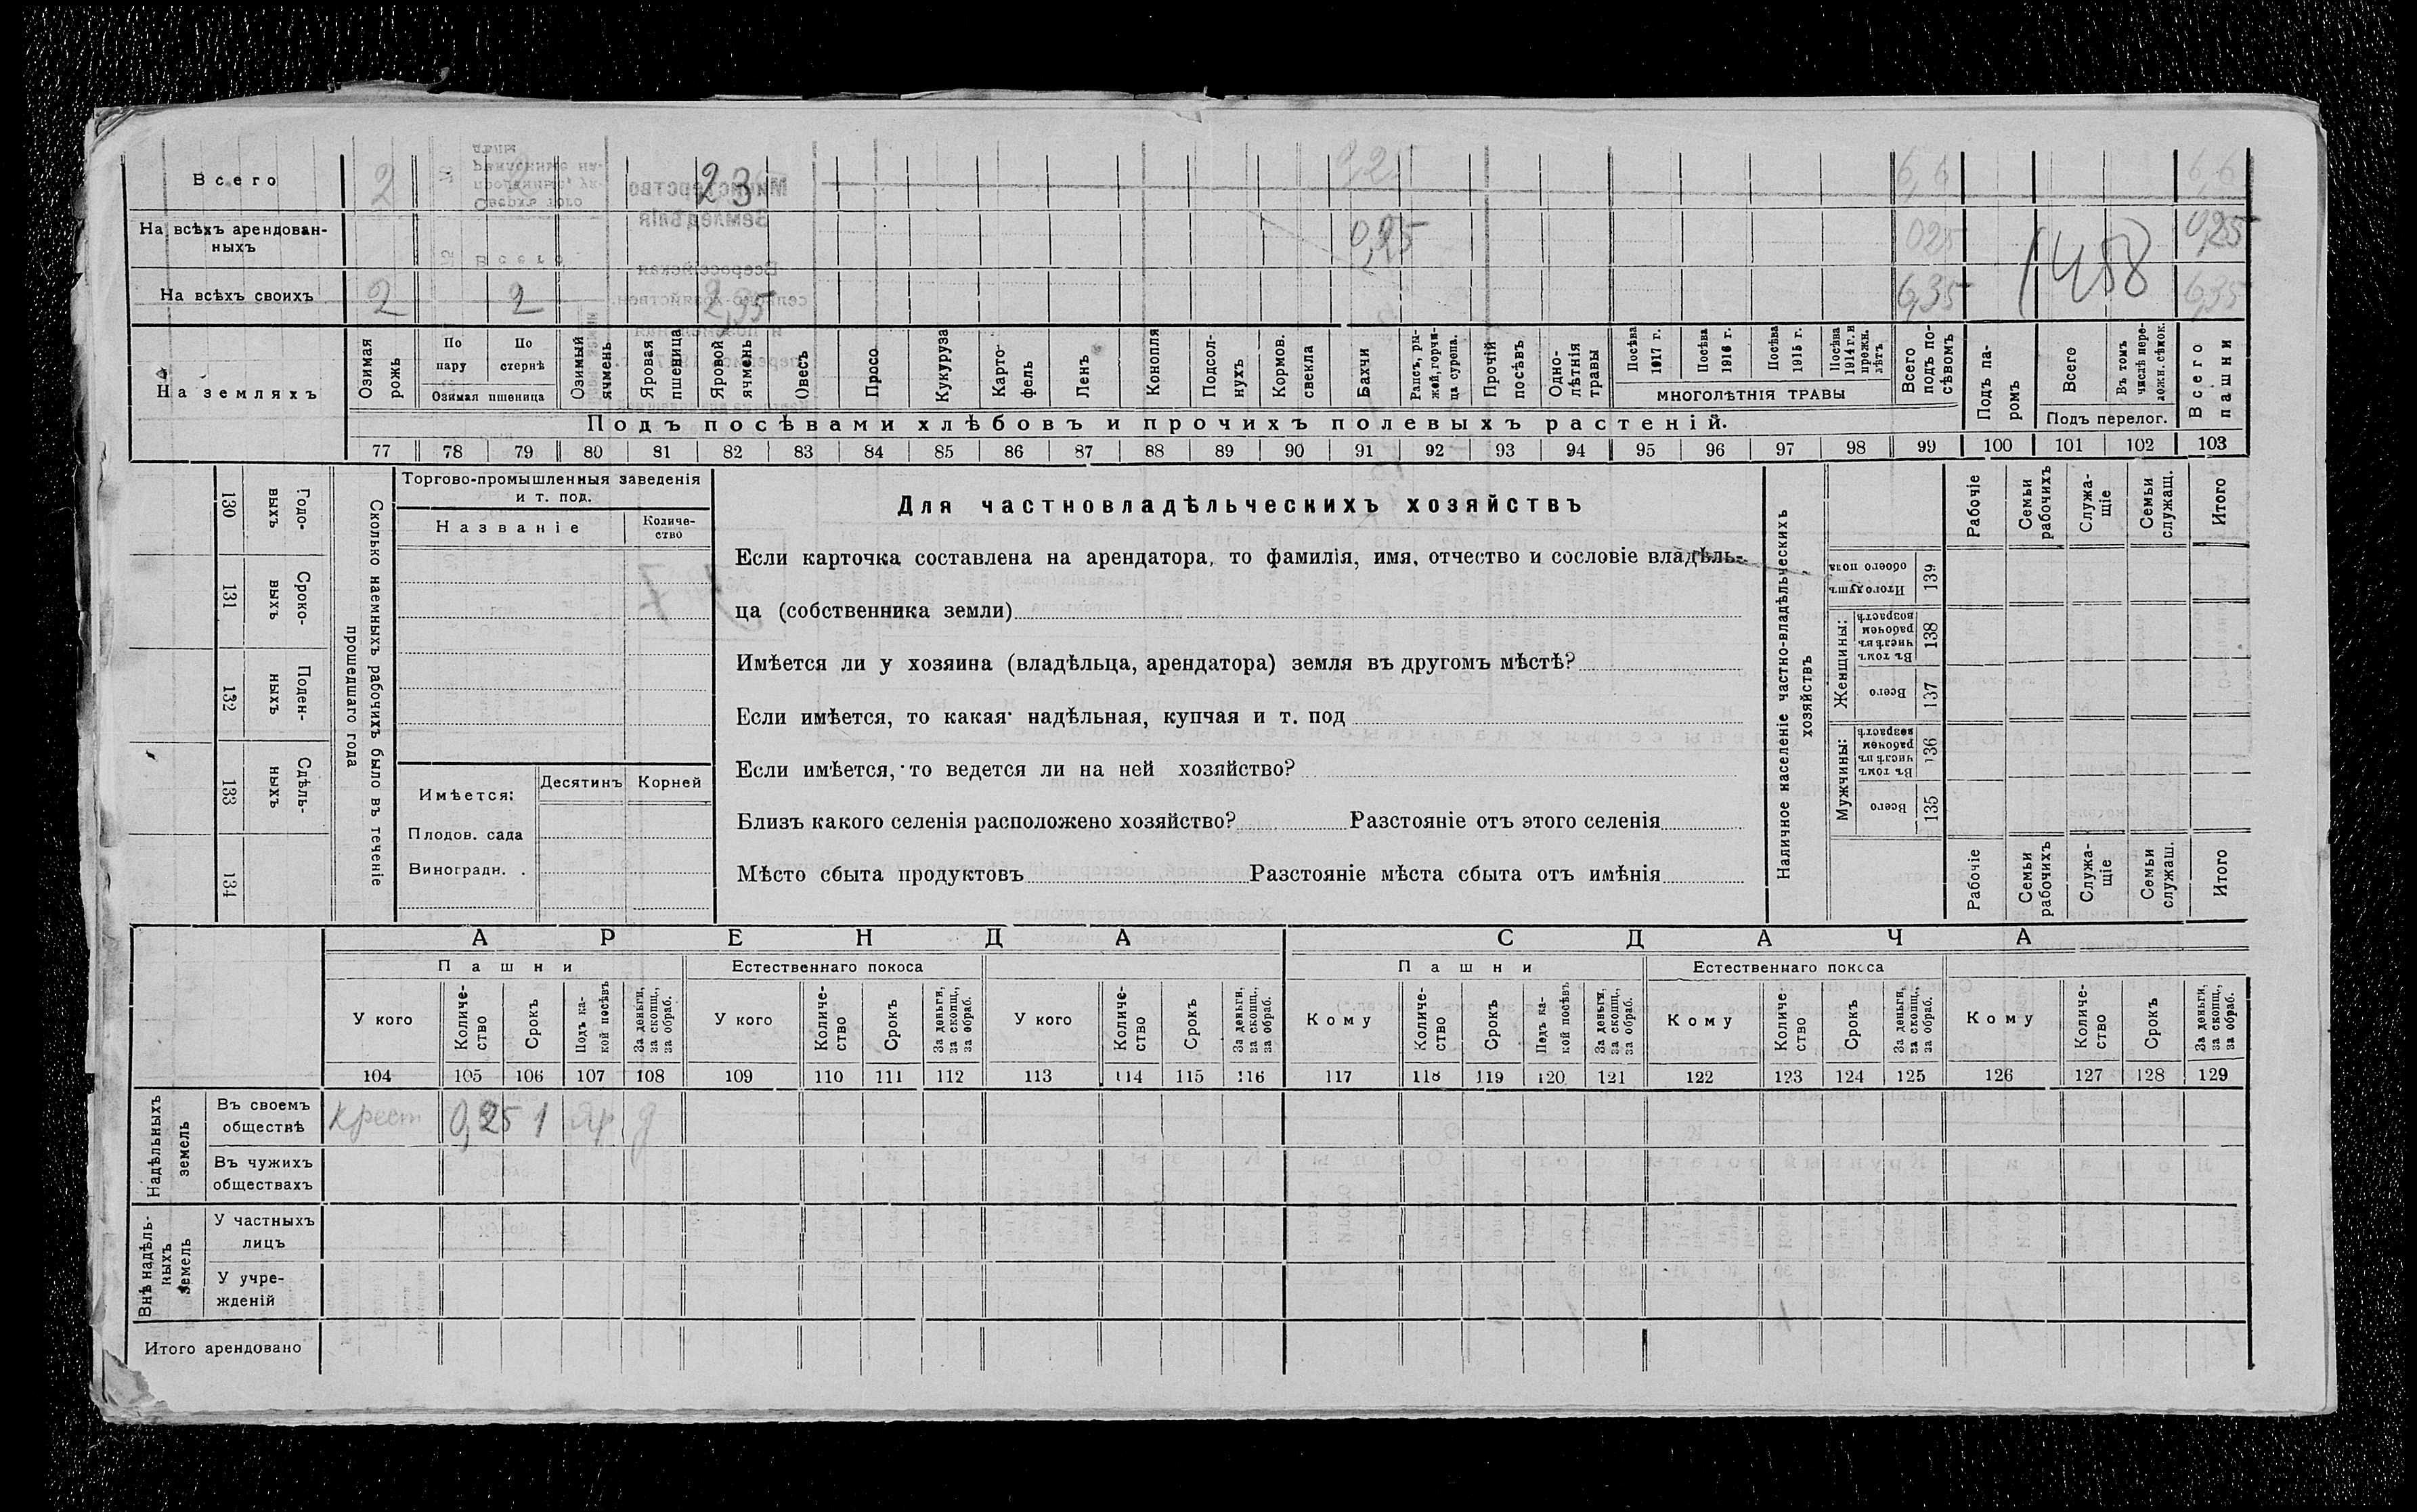 Всего 2 2 2 3 0,25 6,6 6,6
На всѣхъ арендован-
ныхъ 0,25 025 0,25
1458
На всѣхъ своихъ 2 2 2,35 6,35 6,35
На земляхъ
Озимая рожь
По пару
По стернѣ
Озимая пшеница
Озимый ячмень
Яровая пшеница
Яровой ячмень
Овесъ
Просо
Кукуруза
Карто-
фель
Ленъ
Конопля
Подсол-
нухъ
Кормов. свекла
Бахчи
Рапсъ, ры-
жей, горчи-
ца сурепа.
Прочій посѣвъ
Одно-
лѣтнія травы
Посѣва 1917 г.
Посѣва 1916 г.
Посѣва 1915 г.
Посѣва 1914 г. и прежн. лѣтъ
МНОГОЛѢТНІЯ ТРАВЫ
Всего подъ по-
сѣвомъ
Подъ па-
ромъ
Всего
Въ томъ числѣ пере-
ложн. сѣнок.
Подъ перелог.
Всего пашни
Подъ посѣвами хлѣбовъ и прочихъ полевыхъ растеній.
77 78 79 80 81 82 83 84 85 86 87 88 89 90 91 92 93 94 95 96 97 98 99 100 101 102 103
Сколько наемныхъ рабочихъ было въ теченіе
прошедшаго года
Годо-
выхъ
130
Сроко-
выхъ
131
Поден-
ныхъ
132
Сдѣль-
ныхъ
133
134
Торгово-промышленныя заведенія
и т. под.
Названіе
Количе-
ство
Имѣется:
Десятинъ Корней
Плодов. сада
Виноградн. .
Для частновладѣльческихъ хозяйствъ
Если карточка составлена на арендатора, то фамилія, имя, отчество и сословіе владѣль-
ца (собственника земли)
Имѣется ли у хозяина (владѣльца, арендатора) земля въ другомъ мѣстѣ?
Если имѣется, то какая надѣльная, купчая и т. под
Если имѣется, то ведется ли на ней хозяйство?
Близъ какого селенія расположено хозяйство? Разстояніе отъ этого селенія
Мѣсто сбыта продуктовъ Разстояніе мѣста сбыта отъ имѣнія
Наличное населеніе частно-владѣльческихъ
хозяйствъ
Рабочіе
Семьи рабочихъ
Служа-
щіе
Семьи служащ.
Итого
Итого душъ обоего пола
139
Женщины:
Въ томъ числѣ въ рабочем возрастѣ
138
Всего
137
Мужчины:
Въ томъ числѣ въ рабочем возрастѣ
136
Всего
135
Рабочіе
Семьи рабочихъ
Служа-
щіе
Семьи служащ.
Итого
АРЕНДА СДАЧА
Пашни Естественнаго покоса Пашни Естественнаго покоса
У кого
Количе-
ство
Срокъ
Подъ ка-
кой посѣвъ
За деньги, за скопщ., за обраб.
У кого
Количе-
ство
Срокъ
За деньги, за скопщ., за обраб.
У кого
Количе-
ство
Срокъ
За деньги, за скопщ., за обраб.
Кому
Количе-
ство
Срокъ
Подъ ка-
кой посѣвъ
За деньги, за скопщ., за обраб.
Кому
Количе
ство
Срокъ
За деньги, за скопщ., за обраб.
Кому
Количе-
ство
Срокъ
За деньги, за скопщ., за обраб.
104 105 106 107 108 109 110 111 112 113 114 115 116 117 118 119 120 121 122 123 124 125 126 127 128 129
Надѣльныхъ
земель
Въ своемъ
обществѣ
Крест 0,25 1 яр д
Въ чужихъ
обществахъ
Внѣ надѣль-
ныхъ
земель
У частныхъ
лицъ
У учре-
жденій
Итого арендовано